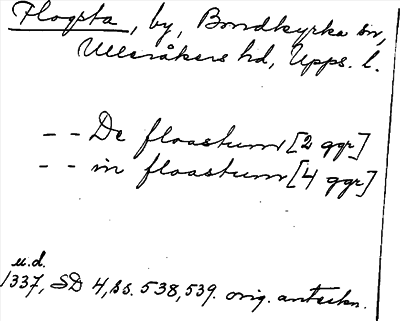 Flogsta, by, Bondkyrka sn,
Ulleråkers hd, Upps. l.
-- De floastum [2 ggr]
-- in floastum [4 ggr]
u.d.
1337, SD 4, ss. 538, 539. orig. anteckn.